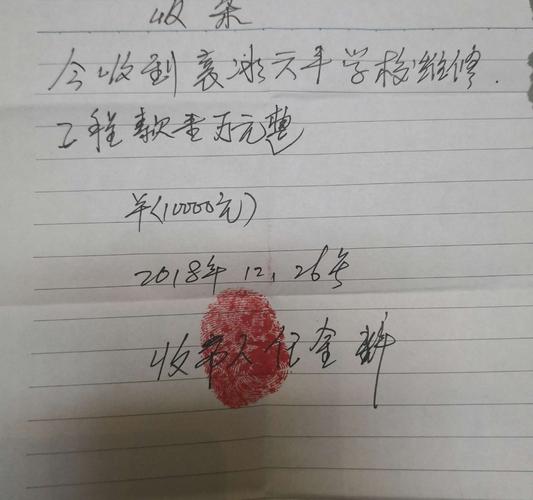 收条
今收到袁冰天平学校维修.
工程款壹万元整
羊(10000元)
2018年12.26号
收条人任金